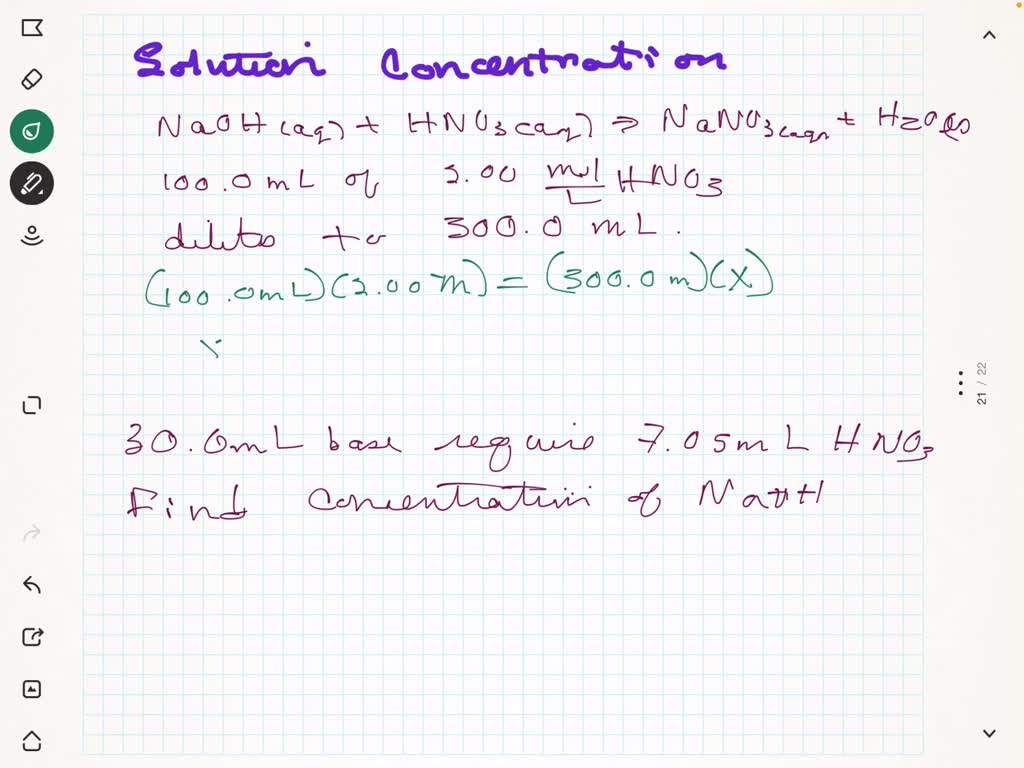 Solution Concentration
NaOH(aq) + HNO3(aq) → NaNO3(aq) + H2O(l)
100.0 mL of 2.00 mol/L HNO3
dilute to 300.0 mL.
(100.0mL)(2.00 M) = (300.0 m)(X)
30.0mL base require 7.05mL HNO3
Find Concentration of NaOH
21 / 22